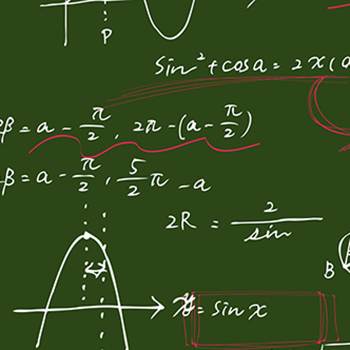 P
sin² + cosa = 2x(a
2β = a - π/2, 2π - (a - π/2)
β = a - π/2, 5/2 π - a
2R = 2/sin
B
y = sin x